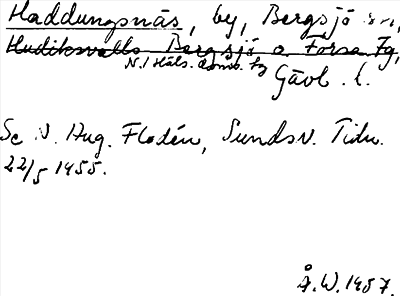 Haddungsnäs, by, Bergsjö sn,
Hudiksvalls Bergsjö o. Forsa Fg,
N. Häls. domb. fg
Gävl. l.
Se N. Aug. Flodén, Sundsv. Tidn.
22/5 1955.
Å. W. 1957.